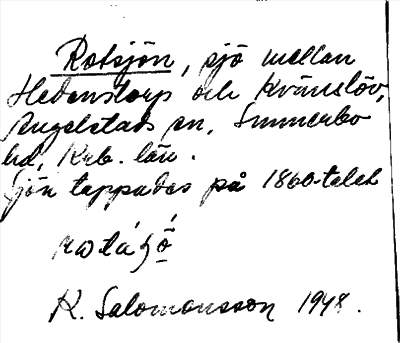 Rotsjön, sjö mellan
Hedenstorp och Kvänslöv,
Angelstads sn, Sunnerbo
hd, Krb. län.
Sjön tappades på 1860-talet
K. Salomonsson 1948.